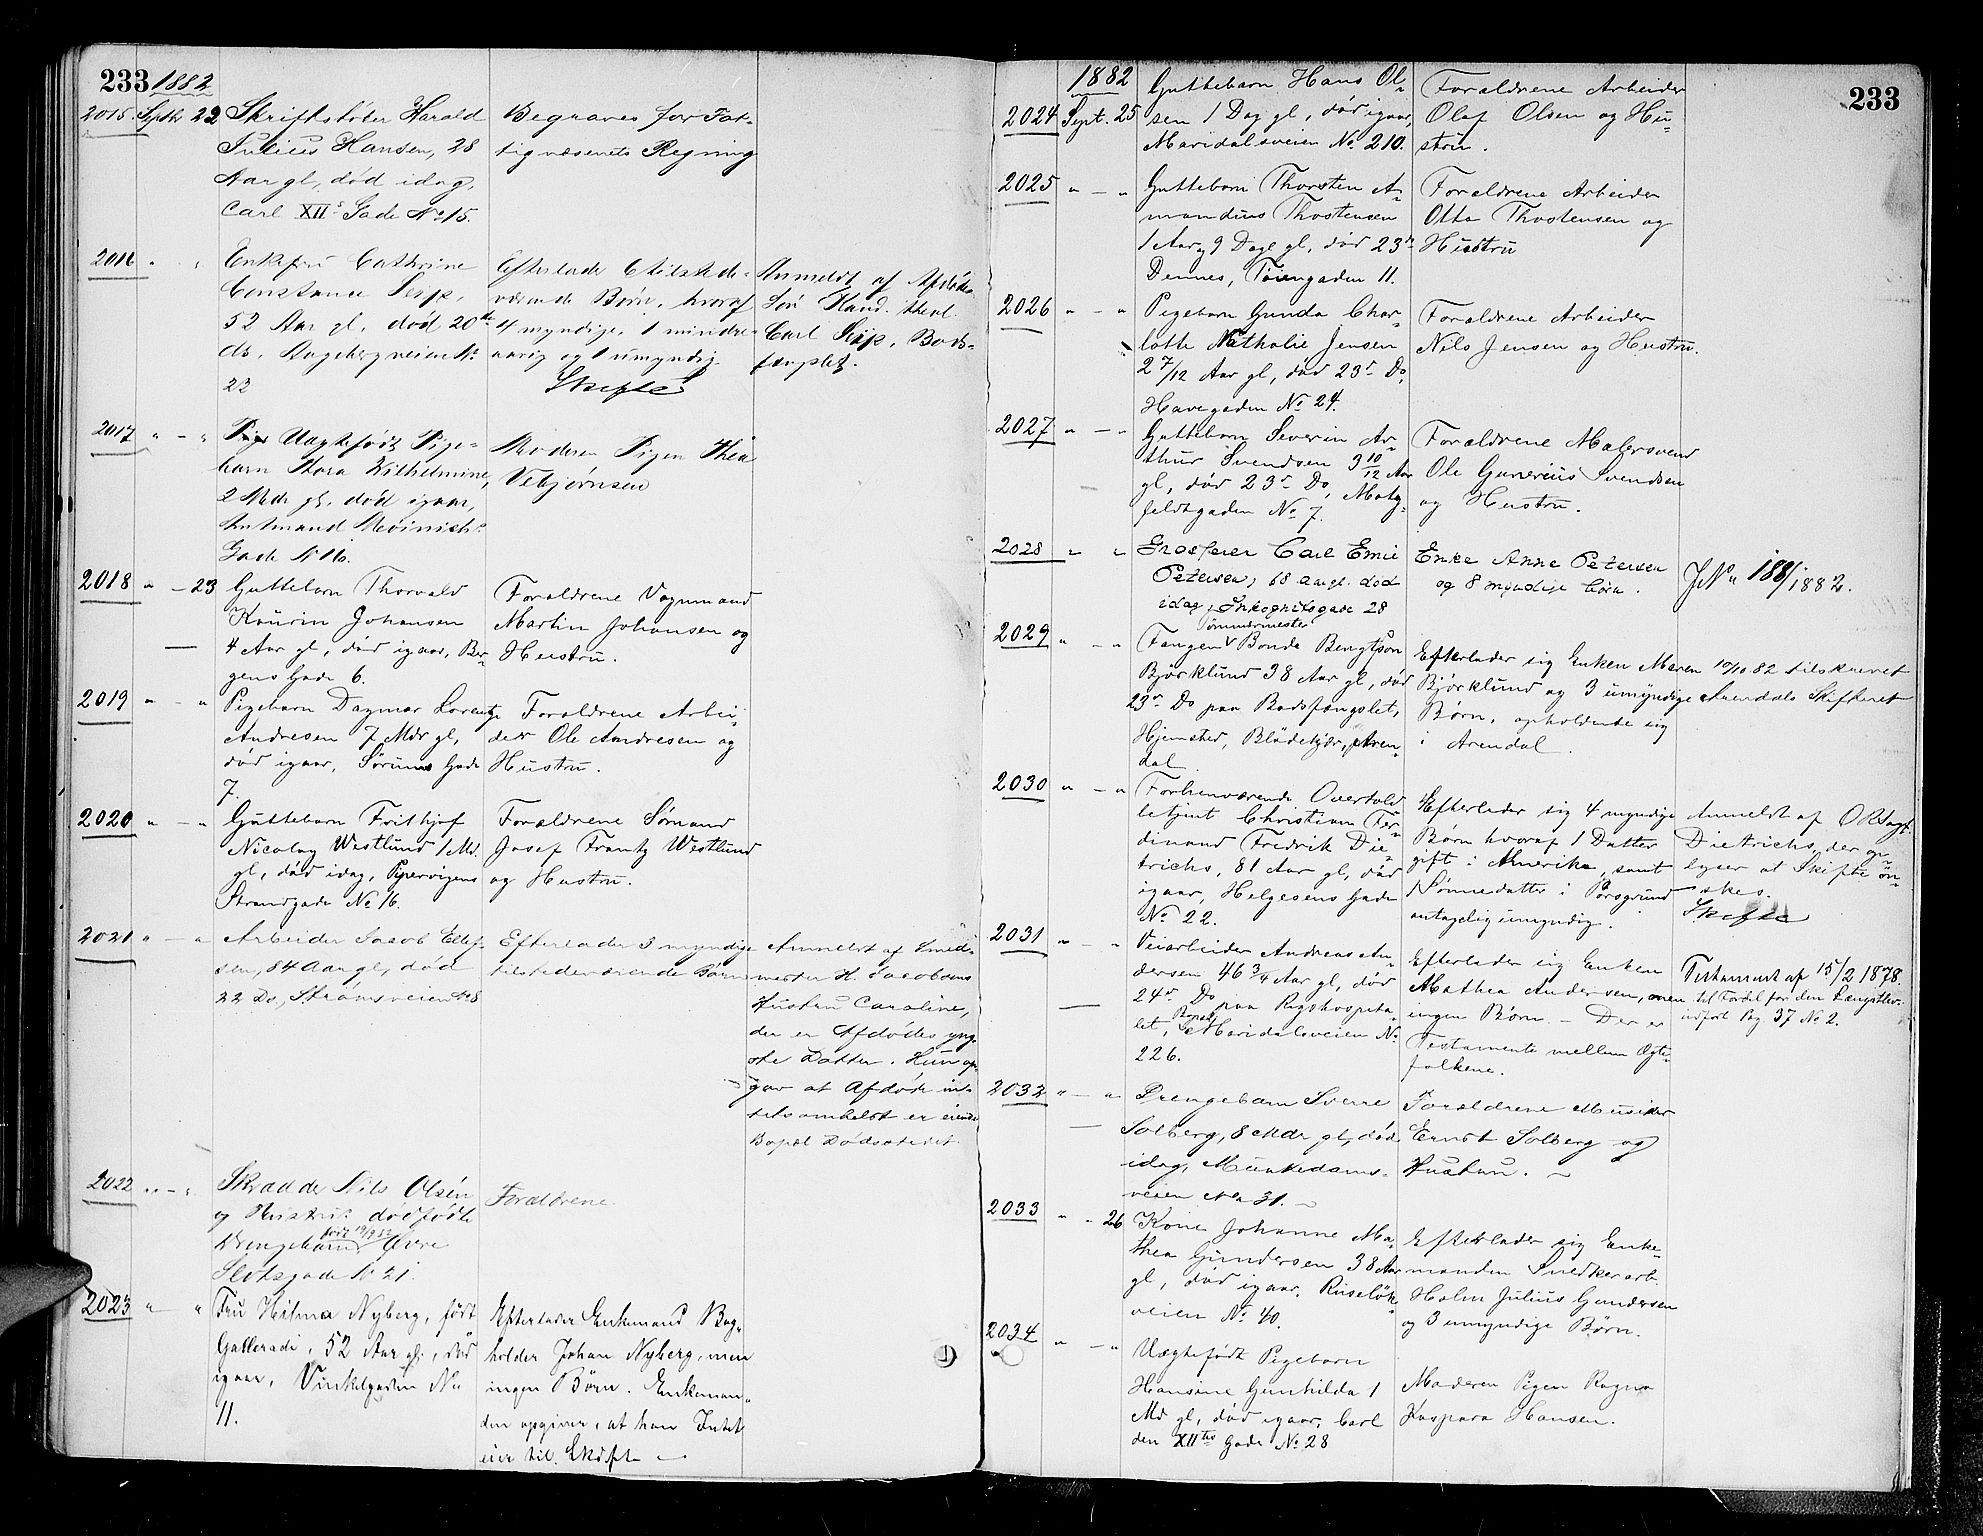 233 1882
2015. Septbr 22
Skriftstøber Harald
Julius Hansen, 28
Aar gl, død idag,
Carl XIIs Gade No 15.
Begraves for Fat-
tigvæsenets Regning
2016 " "
Enkefru Cathrine
Constance Seip,
52 Aar gl, død 20de
ds,
22
Efterlader 6 tilstede-
værende Børn, hvoraf
4 myndige, 1 mindre-
aarig og 1 umyndig.
Skifte
Anmeldt af Afdødes
Søn Kand. theol.
Carl Seip, Bods-
fængslet.
2017 " - "
Uægtefødt Pige-
barn Thora Wilhelmine,
2 Mdr gl, død igaar,
Amtmand Meinichs
Gade No 16.
Moderen Pigen Thea
Vebjørnsen
2018 " - 23
Guttebarn Thorvald
Kaurin Johansen
4 Aar gl, død igaar, Ber-
gens Gade 6.
Forældrene Vognmand
Martin Johansen og
Hustru.
2019 " - "
Pigebarn Dagmar Lorentze
Andresen 7 Mdr gl,
død igaar, Sørums Gade
7.
Forældrene Arbei-
der Ole Andresen og
Hustru.
2020 " - "
Guttebarn Frithjof
Nicolay Westlund 1 Md.
gl, død idag, Pipervigens
Strandgade No 16.
Forældrene Sømand
Josef Frantz Westlund
og Hustru.
2021 " - "
Arbeider Jacob Ellef-
sen, 84 Aar gl, død
22 Ds, Strømsveien No 8
Efterlader 3 myndige
tilstedeværende Børn
Anmeldt af Smed-
mester H. Jacobsens
Hustru Caroline,
der er Afdødes yng-
ste Datter. Hun op-
gav at Afdøde in-
tetsomhelst er eiende
Bopæl Dødsstedet
2022 " - "
Skrædder Nils Olsen
og Hustrus dødfødte
født 19/9 82
Drengebarn, Øvre
Slotsgade No 21.
Forældrene
2023 " "
Fru Hilma Nyberg, født
Galleradi, 52 Aar gl, død
igaar, Vinkelgaden No
11.
Efterlader Enkemand Bog-
holder Johan Nyberg, men
ingen Børn. Enkeman-
den opgiver, at han Intet
eier til Skifte
233
1882
2024 Sept. 25
Guttebarn Hans Ol-
sen 1 Dag gl, død igaar,
Maridalsveien No 210.
Forældrene Arbeider
Olaf Olsen og Hu-
stru.
2025 " - "
Guttebarn Thorsten A-
mandius Thostensen
1 Aar, 9 Dage gl, død 23de
Dennes, Tøiengaden 11.
Forældrene Arbeider
Otto Thostensen og
Hustru
2026 " - "
Pigebarn Gunda Char-
lotte Nathalie Jensen
2 7/12 Aar gl, død 23de Do,
Havegaden No 24.
Forældrene Arbeider
Nils Jensen og Hustru.
2027 " - "
Guttebarn Severin Ar-
thur Svendsen 3 10/12 Aar
gl, død 23de Do, Motz-
feldtgaden No 7.
Forældrene Malersvend
Ole Gunerius Svendsen
og Hustru.
2028 " "
Grosserer Carl Emil
Petersen, 68 Aar gl. død
idag, Inkognitogade 28
Enke Anne Petersen
og 8 myndige Børn.
J No 188/1882.
2029 " - "
Tømmermester
Fangen Bonde Bengtson
Björklund 38 Aar gl, død
23de Do paa Bodsfængslet,
Hjemsted, Blødekjær, Aren-
dal
Efterlader sig Enken Maren
Björklund og 3 umyndige
Børn, opholdende sig
i Arendal.
10/10 82 tilskrevet
Arendals Skifteret
2030 " - "
Forhenværende Overtold-
betjent Christian Fer-
dinand Fredrik Die-
trichs, 81 Aar gl, død
igaar, Helgesens Gade
No 22.
Efterlader sig 4 myndige
Børn hvoraf 1 Datter
gift i Amerika, samt
1 Sønnedatter i Porsgrund
antagelig umyndig.
Anmeldt af O R Sagf.
Dietrichs, der op-
lyser at Skifte øn-
skes.
Skifte
2031 " - "
Veiarbeider Andreas An-
dersen 46 3/4 Aar gl, død
24de Do paa Rigshospita-
let, Bopæl Maridalsveien No
226.
Efterlader sig Enken
Mathea Andersen, men
ingen Børn - Der er
Testamente mellem Ægte-
folkene.
Testament af 15/2 1878
til Fordel for den Længstlev.
indført Pag 37 No 2.
2032 " - "
Drengebarn Sverre
Solberg, 8 Mdr gl, død
idag, Munkedams-
veien No 31.
Forældrene Musiker
Ernst Solberg og
Hustru.
2033 " " 26
Kone Johanne Ma-
thea Gundersen 38 Aar
gl, død igaar, Ruseløk-
veien No 40.
Efterlader sig Enke-
manden Snedkerarb.
Holm Julius Gundersen
og 3 umyndige Børn.
2034 " - "
Uægtefødt Pigebarn
Hansine Gunhilda 1
Md gl, død igaar, Carl
den XIItes Gade No 28
Moderen Pigen Ragna
Kaspara Hansen.